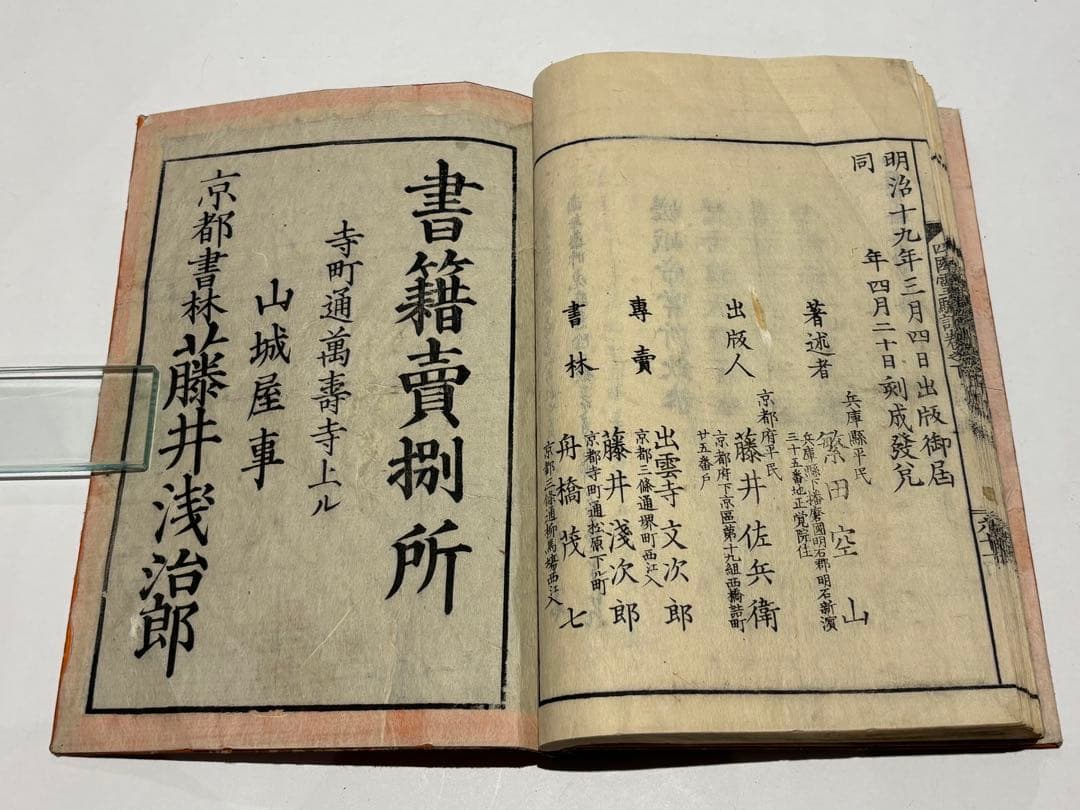 明治十九年三月四日出版御届
同　年四月二十日刻成發兌
兵庫縣平民
著述者　繁田空山
兵庫縣下播磨國明石郡明石新濱
三十五番地正覚院住
京都府平民
出版人　藤井佐兵衛
京都府下京區第十九組西橋詰町
廿五番戸
出雲寺文次郎
京都三條通堺町西江入
專賣　藤井淺次郎
京都寺町通松原下ル町
書林　舟橋茂七
京都三條通柳馬場西江入
書籍賣捌所
寺町通萬壽寺上ル
山城屋事
京都書林藤井浅治郎